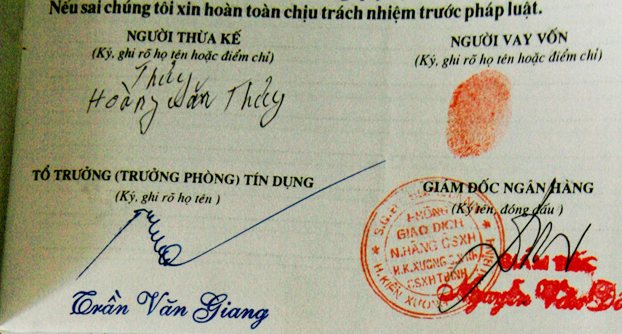 Nếu sai chúng tôi xin hoàn toàn chịu trách nhiệm trước pháp luật.
NGƯỜI THỪA KẾ
(Ký, ghi rõ họ tên hoặc điểm chỉ)
Thủy
Hoàng Văn Thủy
NGƯỜI VAY VỐN
(Ký, ghi rõ họ tên hoặc điểm chỉ)
TỔ TRƯỞNG (TRƯỞNG PHÒNG) TÍN DỤNG
(Ký, ghi rõ họ tên )
Trần Văn Giang
GIÁM ĐỐC NGÂN HÀNG
(Ký tên, đóng dấu )
PHÒNG
GIAO DỊCH
N.HÀNG CSXH
H.K.XƯƠNG
CSXH TỈNH
H.KIẾN XƯƠNG
GIÁM ĐỐC
Nguyễn Văn